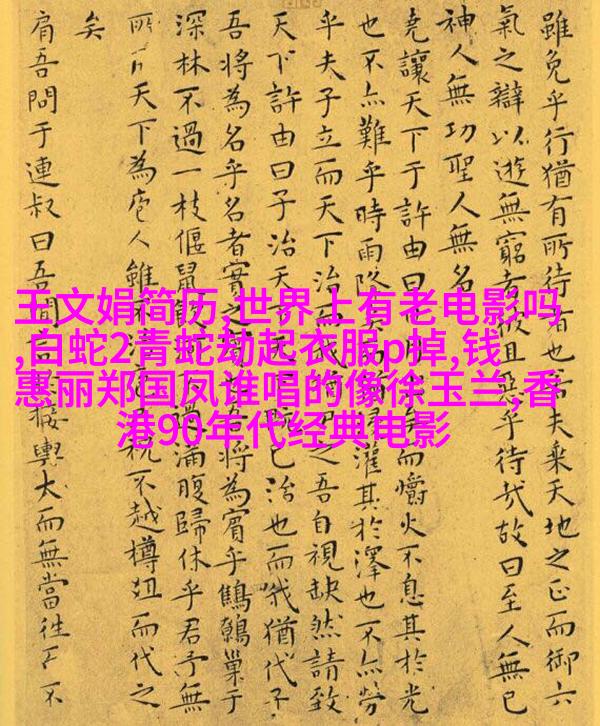 王文娟简历,世界上有老电影吗
,白蛇2青蛇劫起衣服p掉,钱
惠丽郑国凤谁唱的像徐玉兰,香
港90年代经典电影
雖免乎行猶有所待者也若夫乘天地之正而御六
氣之辯以遊無窮者彼且惡乎待哉故曰至人無己
神人無功聖人無名
堯讓天下于許由曰矣而爝火不息其於光
也不亦難乎時雨降灌其於澤也不亦勞
乎夫子立而天下治之吾自視缺然請致
天下許由曰子治天已治也而我猶代子
吾將為名乎名者實之吾將為賓乎鷦鷯巢于
深林不過一枝偃鼠飲滿腹歸休乎君予無
所用天下為庖人雖不祝不越樽俎而代之
矣
肩吾問于連叔曰吾聞言接輿大而無當往而不